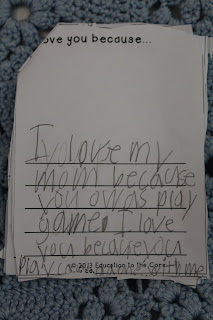 ove you because...
I love my
mom because
you owas play
game. I love
you because you
© 2013 Education to the Core
play game with me